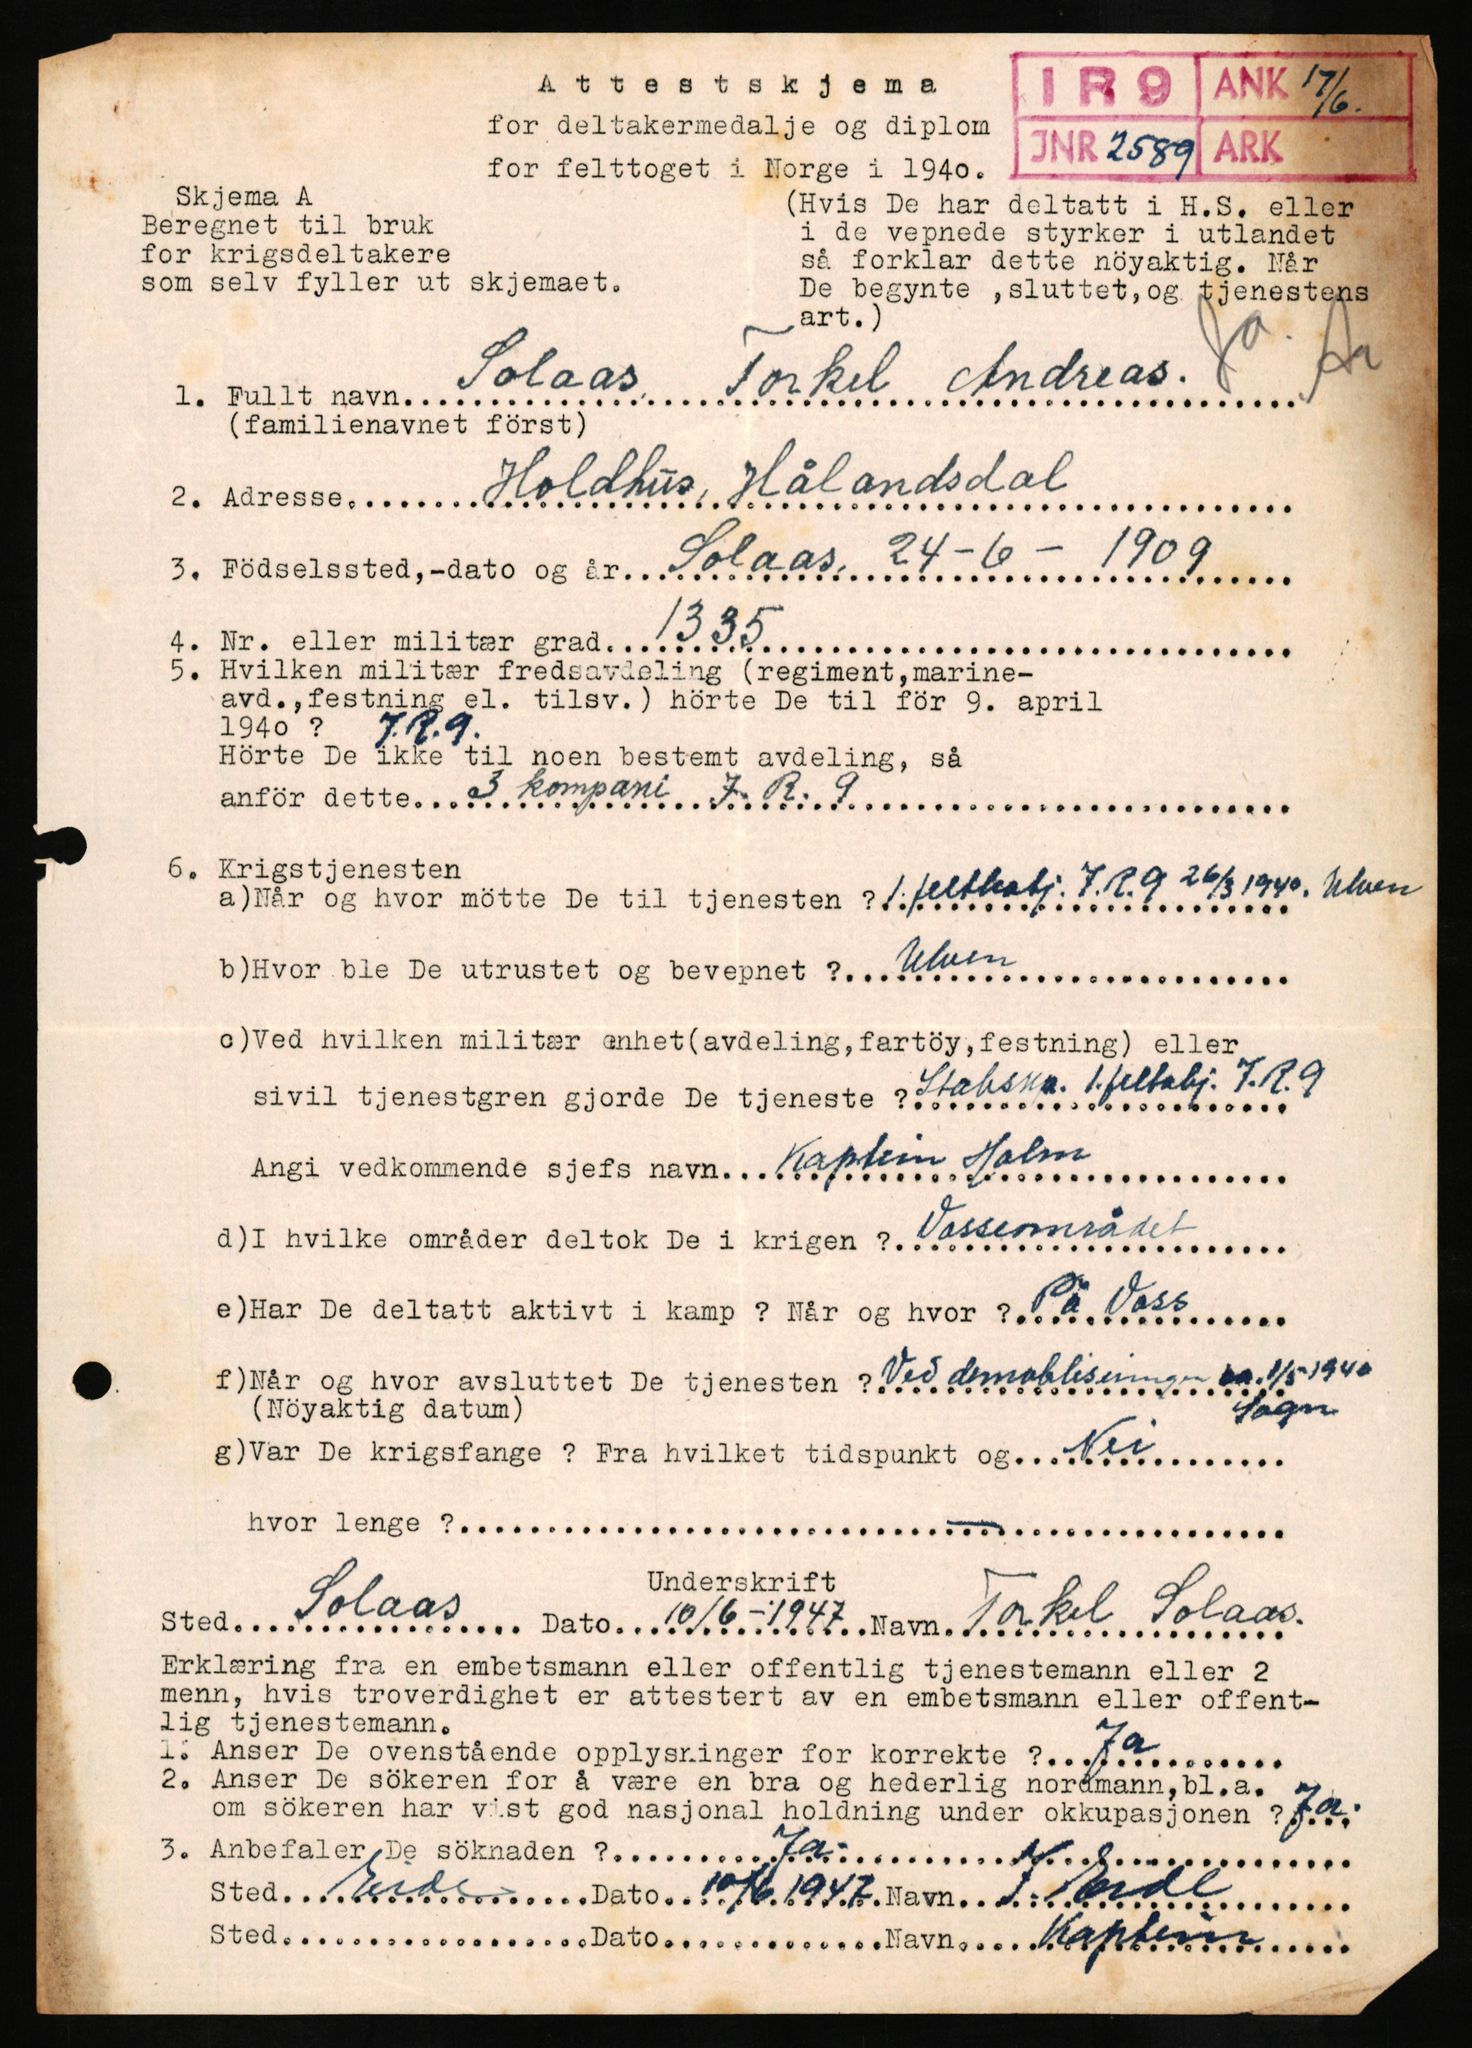 Attestskjema
for deltakermedalje og diplom
for felttoget i Norge i 1940.
IR9 ANK 17/6.
JNR 2589 ARK
Skjema A
Beregnet til bruk
for krigsdeltakere
som selv fyller ut skjemaet.
(Hvis De har deltatt i H.S. eller
i de vepnede styrker i utlandet
så forklar dette nöyaktig. Når
De begynte ,sluttet,og tjenestens
art.)
Ja.
1. Fullt navn Solaas, Torkel Andreas.
(familienavnet först)
2. Adresse. Holdhus, Hålandsdal
3. Födselssted,-dato og år. Solaas, 24-6-1909
4. Nr. eller militær grad. 1335
5. Hvilken militær fredsavdeling (regiment,marine-
avd.,festning el. tilsv.) hörte De til för 9. april
1940 ? I.R.9.
Hörte De ikke til noen bestemt avdeling, så
anför dette. 3 kompani I.R.9
6. Krigstjenesten
a)Når og hvor mötte De til tjenesten ? 1. feltbatj. I.R.9 26/3 1940. Ulven
b)Hvor ble De utrustet og bevepnet ? Ulven
c)Ved hvilken militær enhet(avdeling,fartöy,festning) eller
sivil tjenestgren gjorde De tjeneste ? Stabskp. 1. feltbatj. I.R.9
Angi vedkommende sjefs navn. Kaptein Holm
d)I hvilke områder deltok De i krigen ? Vosseområdet
e)Har De deltatt aktivt i kamp ? Når og hvor ? På Voss
f)Når og hvor avsluttet De tjenesten ? Ved demobliseringen ca. 1/5-1940
(Nöyaktig datum) Sogn
g)Var De krigsfange ? Fra hvilket tidspunkt og Nei
hvor lenge ? —
Underskrift
Sted. Solaas Dato. 10/6-1947 Navn. Torkel Solaas.
Erklæring fra en embetsmann eller offentlig tjenestemann eller 2
menn, hvis troverdighet er attestert av en embetsmann eller offent-
lig tjenestemann.
1. Anser De ovenstående opplysninger for korrekte ? Ja
2. Anser De sökeren for å være en bra og hederlig nordmann,bl.a.
om sökeren har vist god nasjonal holdning under okkupasjonen ? Ja.
3. Anbefaler De söknaden ? Ja.
Sted. Eide Dato. 10/6 1947 Navn. Eide
Sted. Dato. Navn. Kaptein